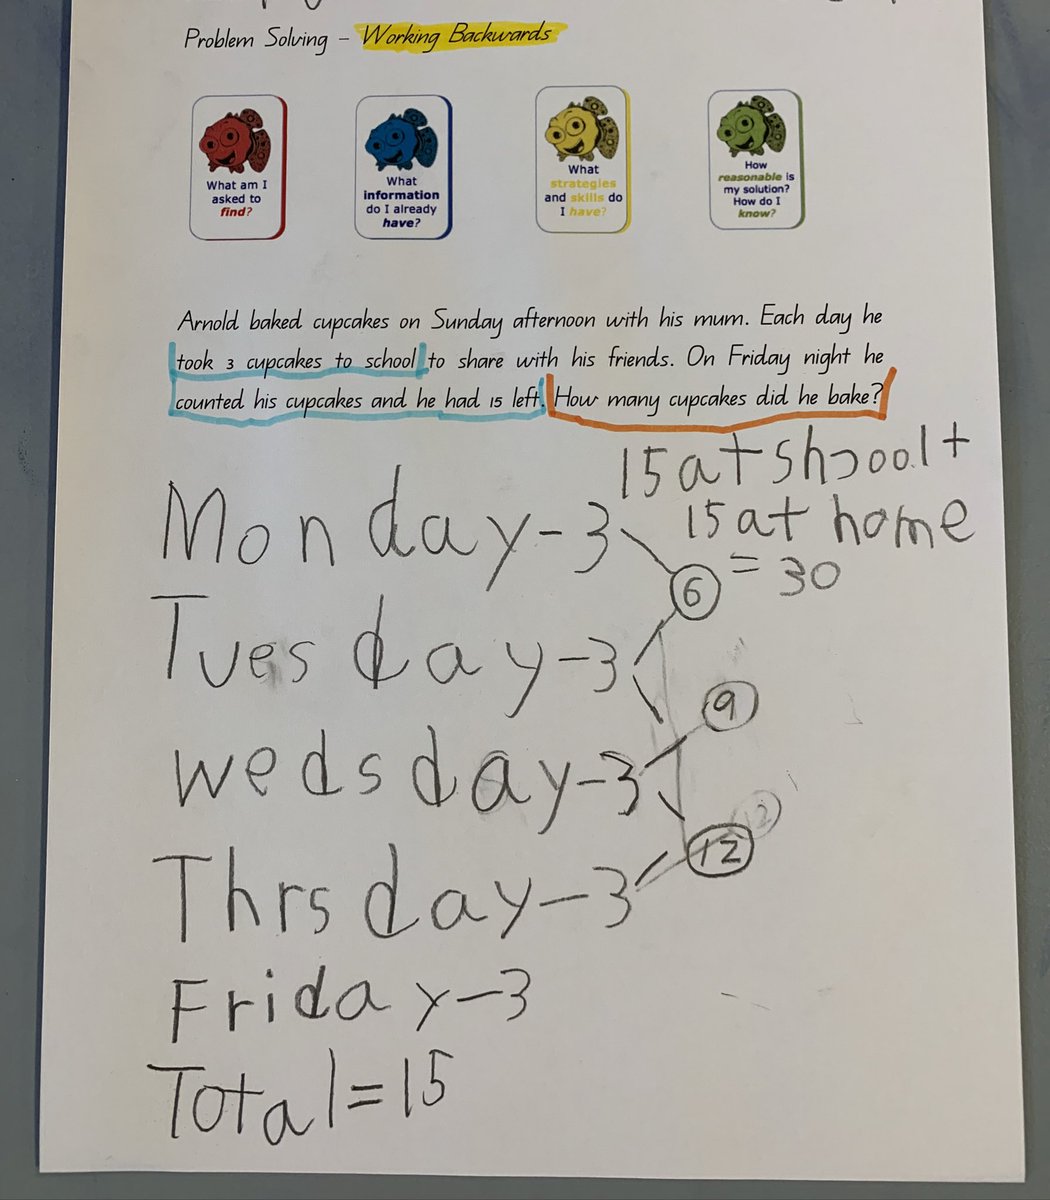 Problem Solving – Working Backwards
What am I
asked to
find?
What
information
do I already
have?
What
strategies
and skills do
I have?
How
reasonable is
my solution?
How do I
know?
Arnold baked cupcakes on Sunday afternoon with his mum. Each day he
took 3 cupcakes to school to share with his friends. On Friday night he
counted his cupcakes and he had 15 left. How many cupcakes did he bake?
15 at shool +
15 at home
= 30
Monday - 3
6
Tuesday - 3
9
wedsday - 3
12
12
Thrsday - 3
Friday - 3
Total = 15